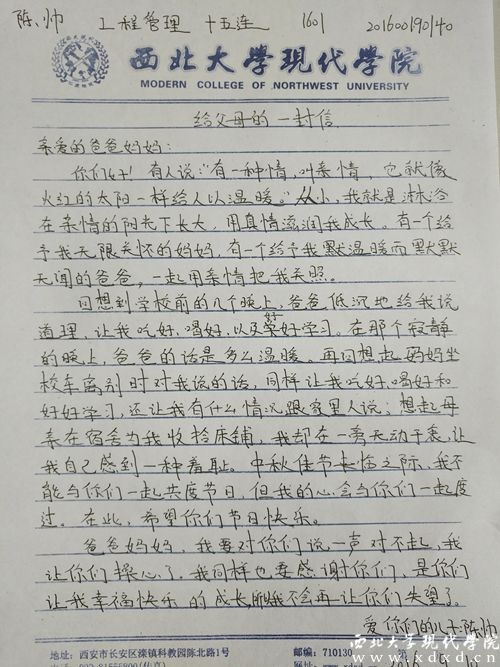 陈帅 工程管理 十五连 1601 201600190140
西北大学现代学院
MODERN COLLEGE OF NORTHWEST UNIVERSITY
给父母的一封信
亲爱的爸爸妈妈:
你们好! 有人说:"有一种情,叫亲情,它就像
火红的太阳一样给人以温暖。"从小,我就是淋浴
在亲情的阳光下长大,用真情滋润我成长。有一个给
予我无限关怀的妈妈,有一个给予我默温暖而默默
无闻的爸爸,一起用亲情把我关照。
回想到学校前的几个晚上,爸爸低沉地给我说
道理,让我吃好、喝好,以及好好学习。在那个寂静
的晚上,爸爸的话是多么温暖。再回想起妈妈坐
校车离别时对我说的话,同样让我吃好、喝好和
好好学习,还让我有什么情况跟家里人说;想起母
亲在宿舍为我收拾床铺,我却在一旁无动于衷,让
我自己感到一种羞耻。中秋佳节来临之际,我不
能与你们一起共度节日,但我的心会与你们一起度
过。在此,希望你们节日快乐。
爸爸妈妈,我要对你们说一声对不起,我
让你们操心了。我同样也要感谢你们,是你们
让我幸福快乐的成长,我不会再让你们失望了。
爱你们的儿子陈帅
地址:西安市长安区滦镇科教园陈北路1号 邮编:710130
西北大学现代学院
www.xdxd.cn